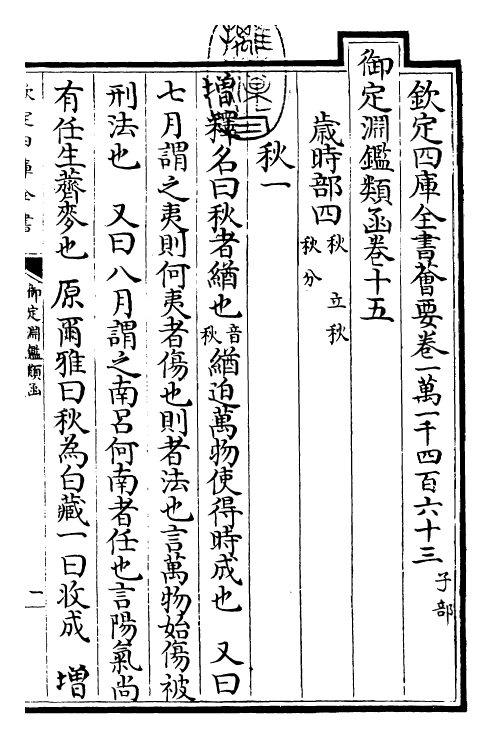 欽定四庫全書薈要卷一萬一千四百六十三 子部
御定淵鑑類函卷十五
歲時部四 秋 立秋 秋分
秋一
增釋名曰秋者緧也音秋緧迫萬物使得時成也 又曰
七月謂之夷則何夷者傷也則者法也言萬物始傷被
刑法也 又曰八月謂之南吕何南者任也言陽氣尚
有任生薺麥也 原爾雅曰秋為白藏一曰收成 增
欽定四庫全書
御定淵鑑類函